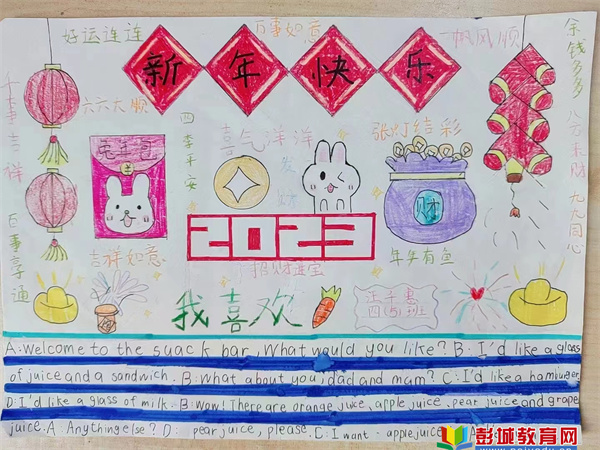 好运连连
百事如意
一帆风顺
余钱多多
新年快乐
千事吉祥
六六大顺
四季平安
喜气洋洋
张灯结彩
八方来财
九九同心
发财
财
2023
百事享通
吉祥如意
招财进宝
年年有鱼
我喜欢
四(5)班
A:Welcome to the suack bar, What would you like? B: I'd like a glass
of juice and a sandwich. B: What about you, dad and mum? C: I'd like a hamburger.
D: I'd like a glass of milk. B: Wow! There are orange juice, apple juice, pear juice and grape
juice. A: Anything else? D: pear juice, please. C: I want apple juice
彭城教育网